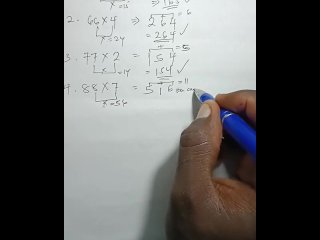 2. 66 × 4 ⇒ 264
× = 24 = 264 ✓
3. 77 × 2 = 154 = 5
× = 14 = 154 ✓
9. 88 × 7 = 516 = 11
× = 56